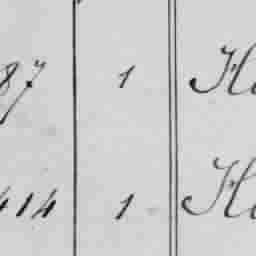 87 1 H
414 1 H